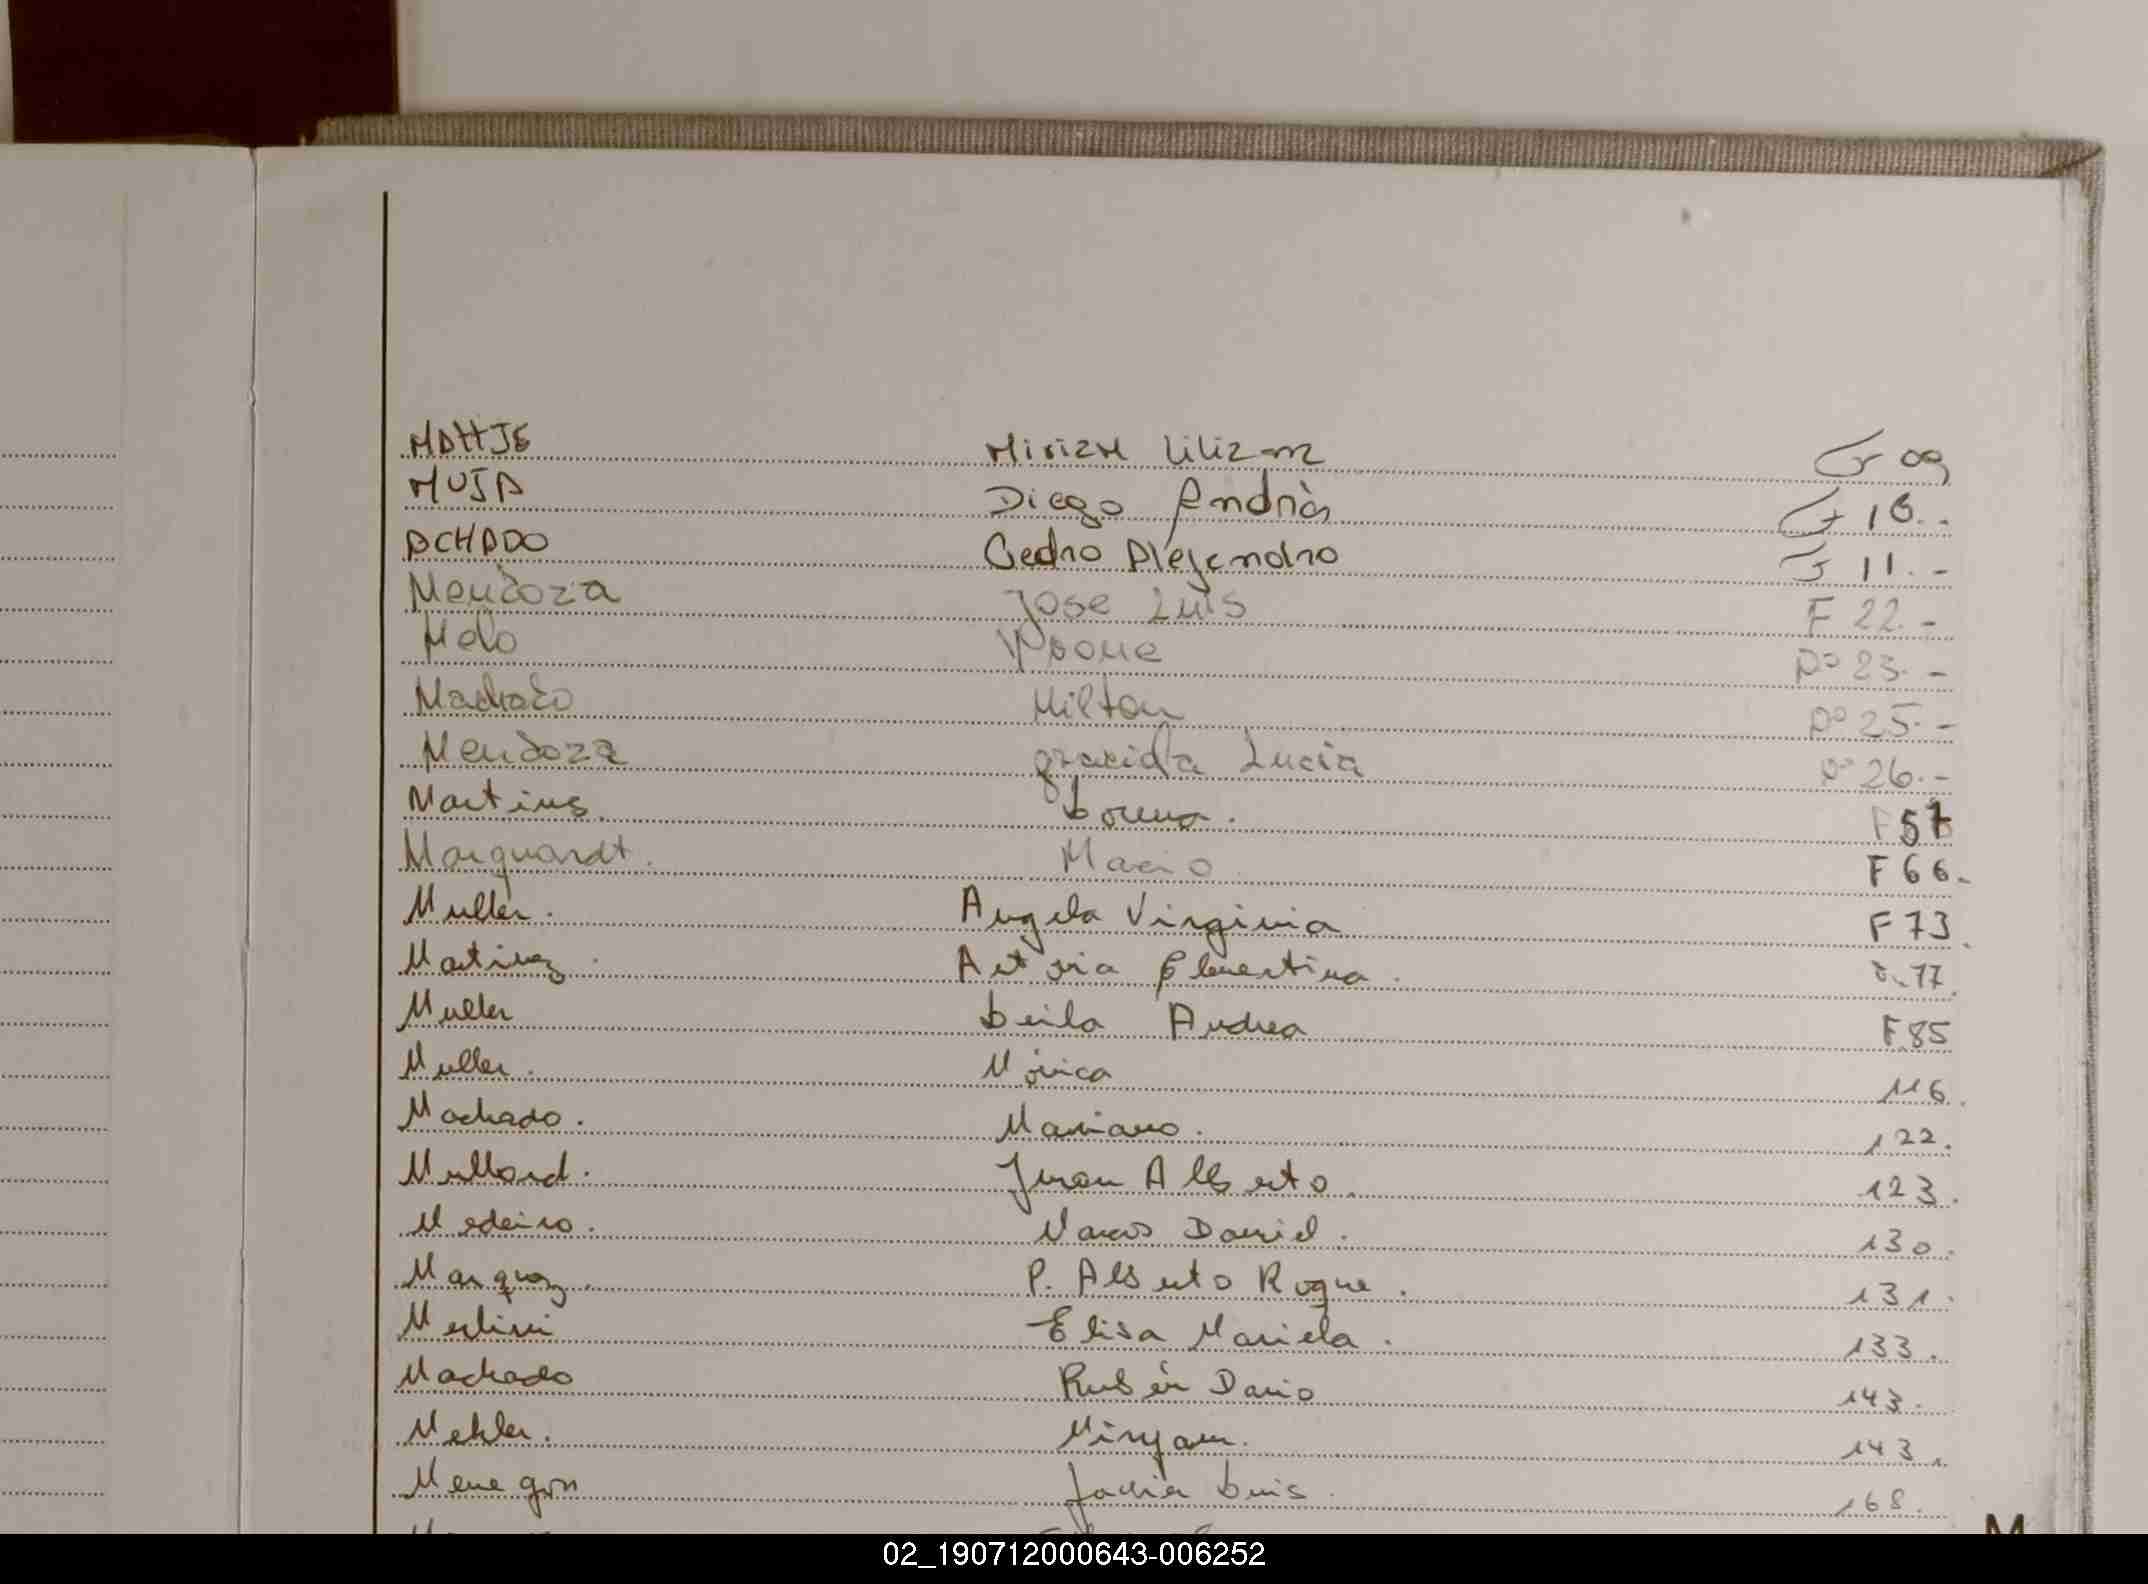 MATTJE Miriam Liliana F 09
MUJA Diego Andrés F 10.-
ACHADO Pedro Alejandro F 11.-
Mendoza Jose Luis F 22.-
Melo Ivone Dº 23.-
Machado Milton Dº 25.-
Mendoza graciela Lucia Dº 26.-
Martins. Lorena. F 57
Marquardt. Mario F 66.
Muller. Angela Virginia F 73.
Martinez. Clementina. 77.
Muller Leila Andrea F 85
Muller. Mónica 116.
Machado. Mariano. 122.
Mullard. Juan Alberto. 123.
Medeiro. Marcos Daniel. 130.
Marquez. P. Alberto Roque. 131.
Merlini Elisa Mariela. 133.
Machado Rubén Dario 143.
Mehler. Miryam. 143.
Menegon Javier Luis. 168.
M
02_190712000643-006252